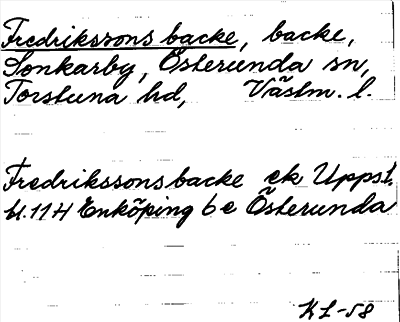 Fredrikssons backe, backe,
Sonkarby, Österunda sn,
Torstuna hd, Västm. l.
Fredrikssons backe ek Uppst.
bl. 11 H Enköping 6 e Österunda
KL-58